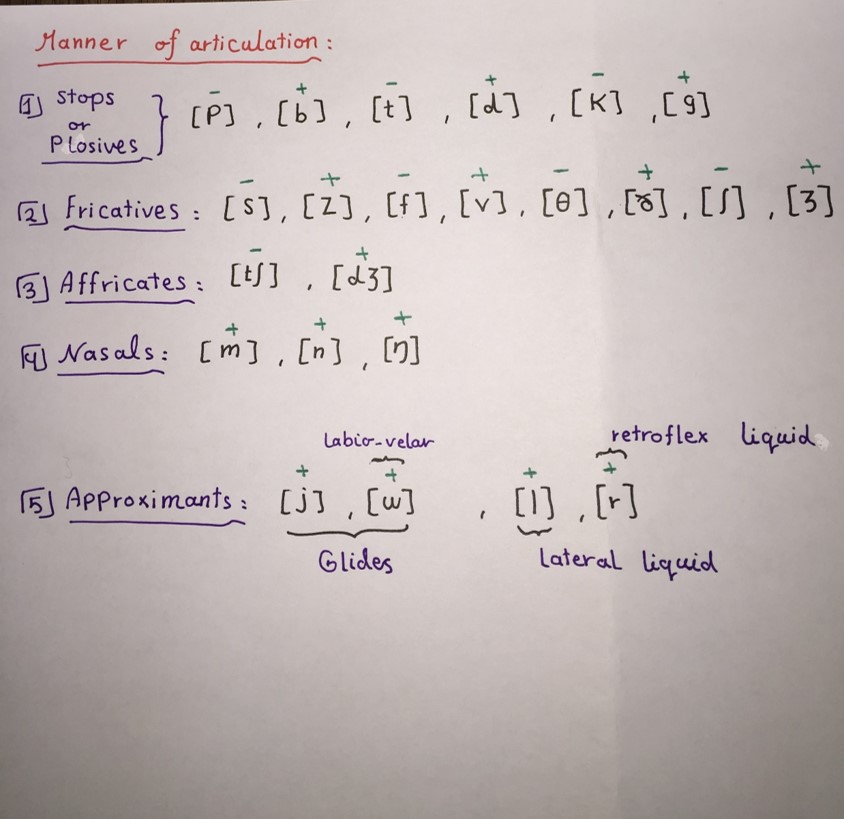 Manner of articulation:
− + − + − +
1 Stops or Plosives } [P], [b], [t], [d], [K], [g]
− + − + − + − +
2 Fricatives: [s], [Z], [f], [v], [θ], [४], [ʃ], [ʒ]
− +
3 Affricates: [tʃ], [dʒ]
+ + +
4 Nasals: [m], [n], [ŋ]
Labio-velar retroflex liquid
+ + + +
5 Approximants: [j], [w], [l], [r]
Glides Lateral liquid